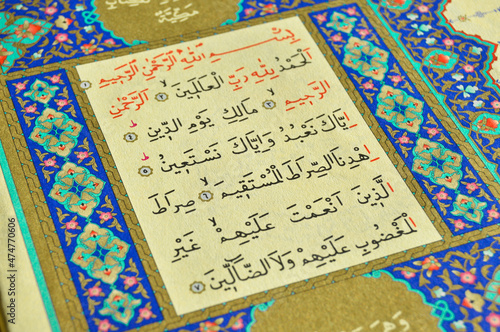 بِسْمِ اللّٰهِ الرَّحْمٰنِ الرَّحِيمِ ١
اَلْحَمْدُ لِلّٰهِ رَبِّ الْعَالَمِينَۙ ٢ اَلرَّحْمٰنِ
الرَّحِيمِۙ ٣ مَالِكِ يَوْمِ الدِّينِۜ ٤
اِيَّاكَ نَعْبُدُ وَاِيَّاكَ نَسْتَعِينُۜ ٥
اِهْدِنَا الصِّرَاطَ الْمُسْتَقِيمَۙ ٦ صِرَاطَ
الَّذِينَ اَنْعَمْتَ عَلَيْهِمْۙ غَيْرِ
الْمَغْضُوبِ عَلَيْهِمْ وَلَا الضَّالِّينَ ٧
Adobe Stock | #474770606